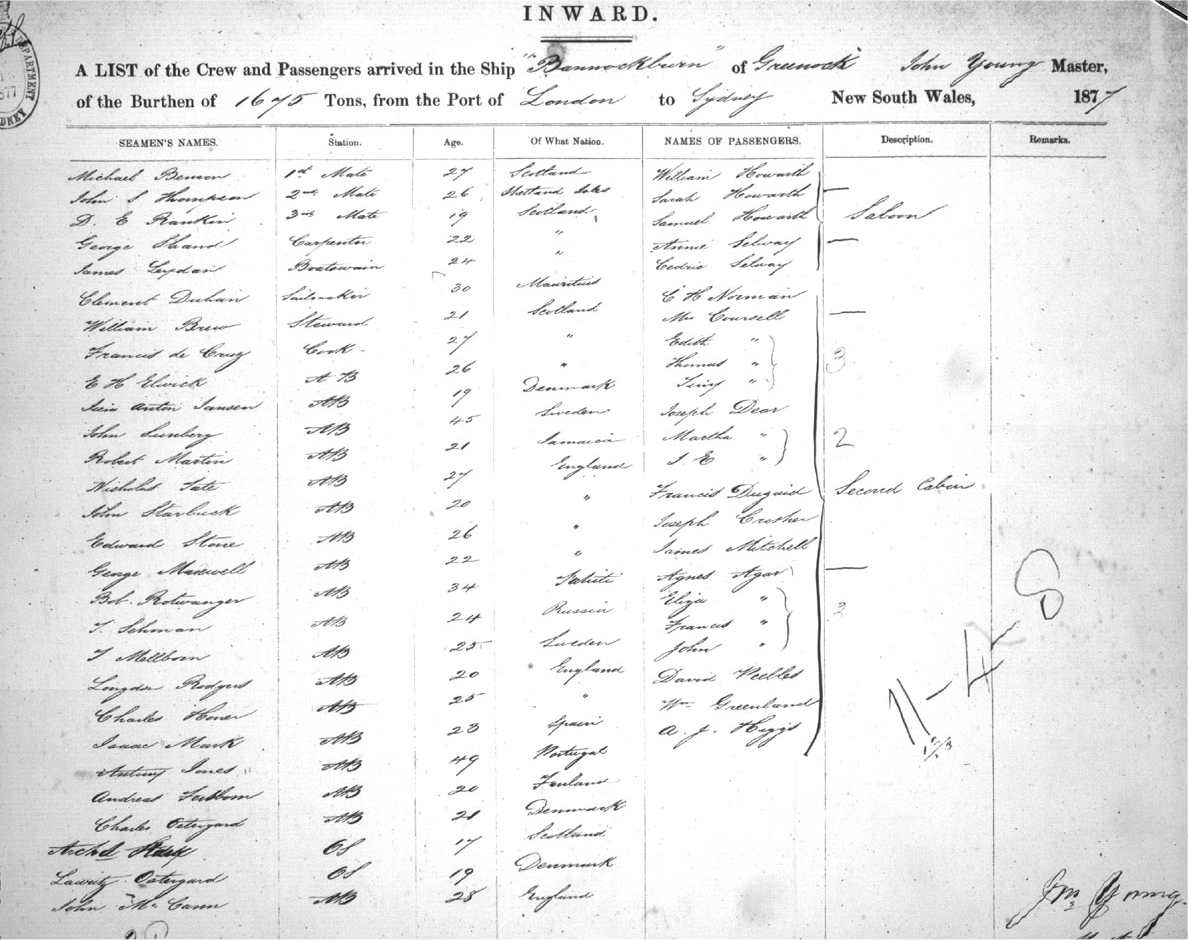 INWARD.
A LIST of the Crew and Passengers arrived in the Ship "Bannockburn" of Greenock John Young Master,
of the Burthen of 1675 Tons, from the Port of London to Sydney New South Wales, 1877
SEAMEN'S NAMES. Station. Age. Of What Nation. NAMES OF PASSENGERS. Description. Remarks.
Michael Benson 1st Mate 27 Scotland William Howarth
John S Thompson 2nd Mate 26 Shetland Isles Sarah Howarth
D. E Rankin 3rd Mate 19 Scotland Samuel Howarth Saloon
George Shand Carpenter 22 " Annie Selway
James Leydan Boatswain 24 " Cedric Selway
Clement Duhan Sailmaker 30 Mauritius C H Norman
William Brew Steward 21 Scotland Mrs Coursell
Francis de Cruz Cook 27 " Edith " 3
E H Elwick A B 26 " Thomas "
Anton Jansen AB 19 Denmark "
John Lunberg AB 45 Sweden Joseph Dear
Robert Martin AB 21 Jamaica Martha " 2
Nicholas Tate AB 27 England J. E "
John Starbuck AB 20 " Francis Duguid Second Cabin
Edward Stone AB 26 " Joseph Crother
George Maxwell AB 22 " James Mitchell
Bob. Rotwanger AB 34 Agnes Agar
T. Schoman AB 24 Russia Eliza " 2
T Mellbom AB 25 Sweden Francis "
Rodgers AB 20 England John "
Charles AB 25 " David Peebles
Isaac Mark AB 23 Spain Wm Greenland
Antony Jones AB 49 Portugal A. J. Higgs
Andreas AB 20 Finland
Charles Ostergard AB 21 Denmark
Archd OS 17 Scotland
Lawritz Ostergard OS 19 Denmark
John McCann AB 28 England
11-4-8
Jno Young